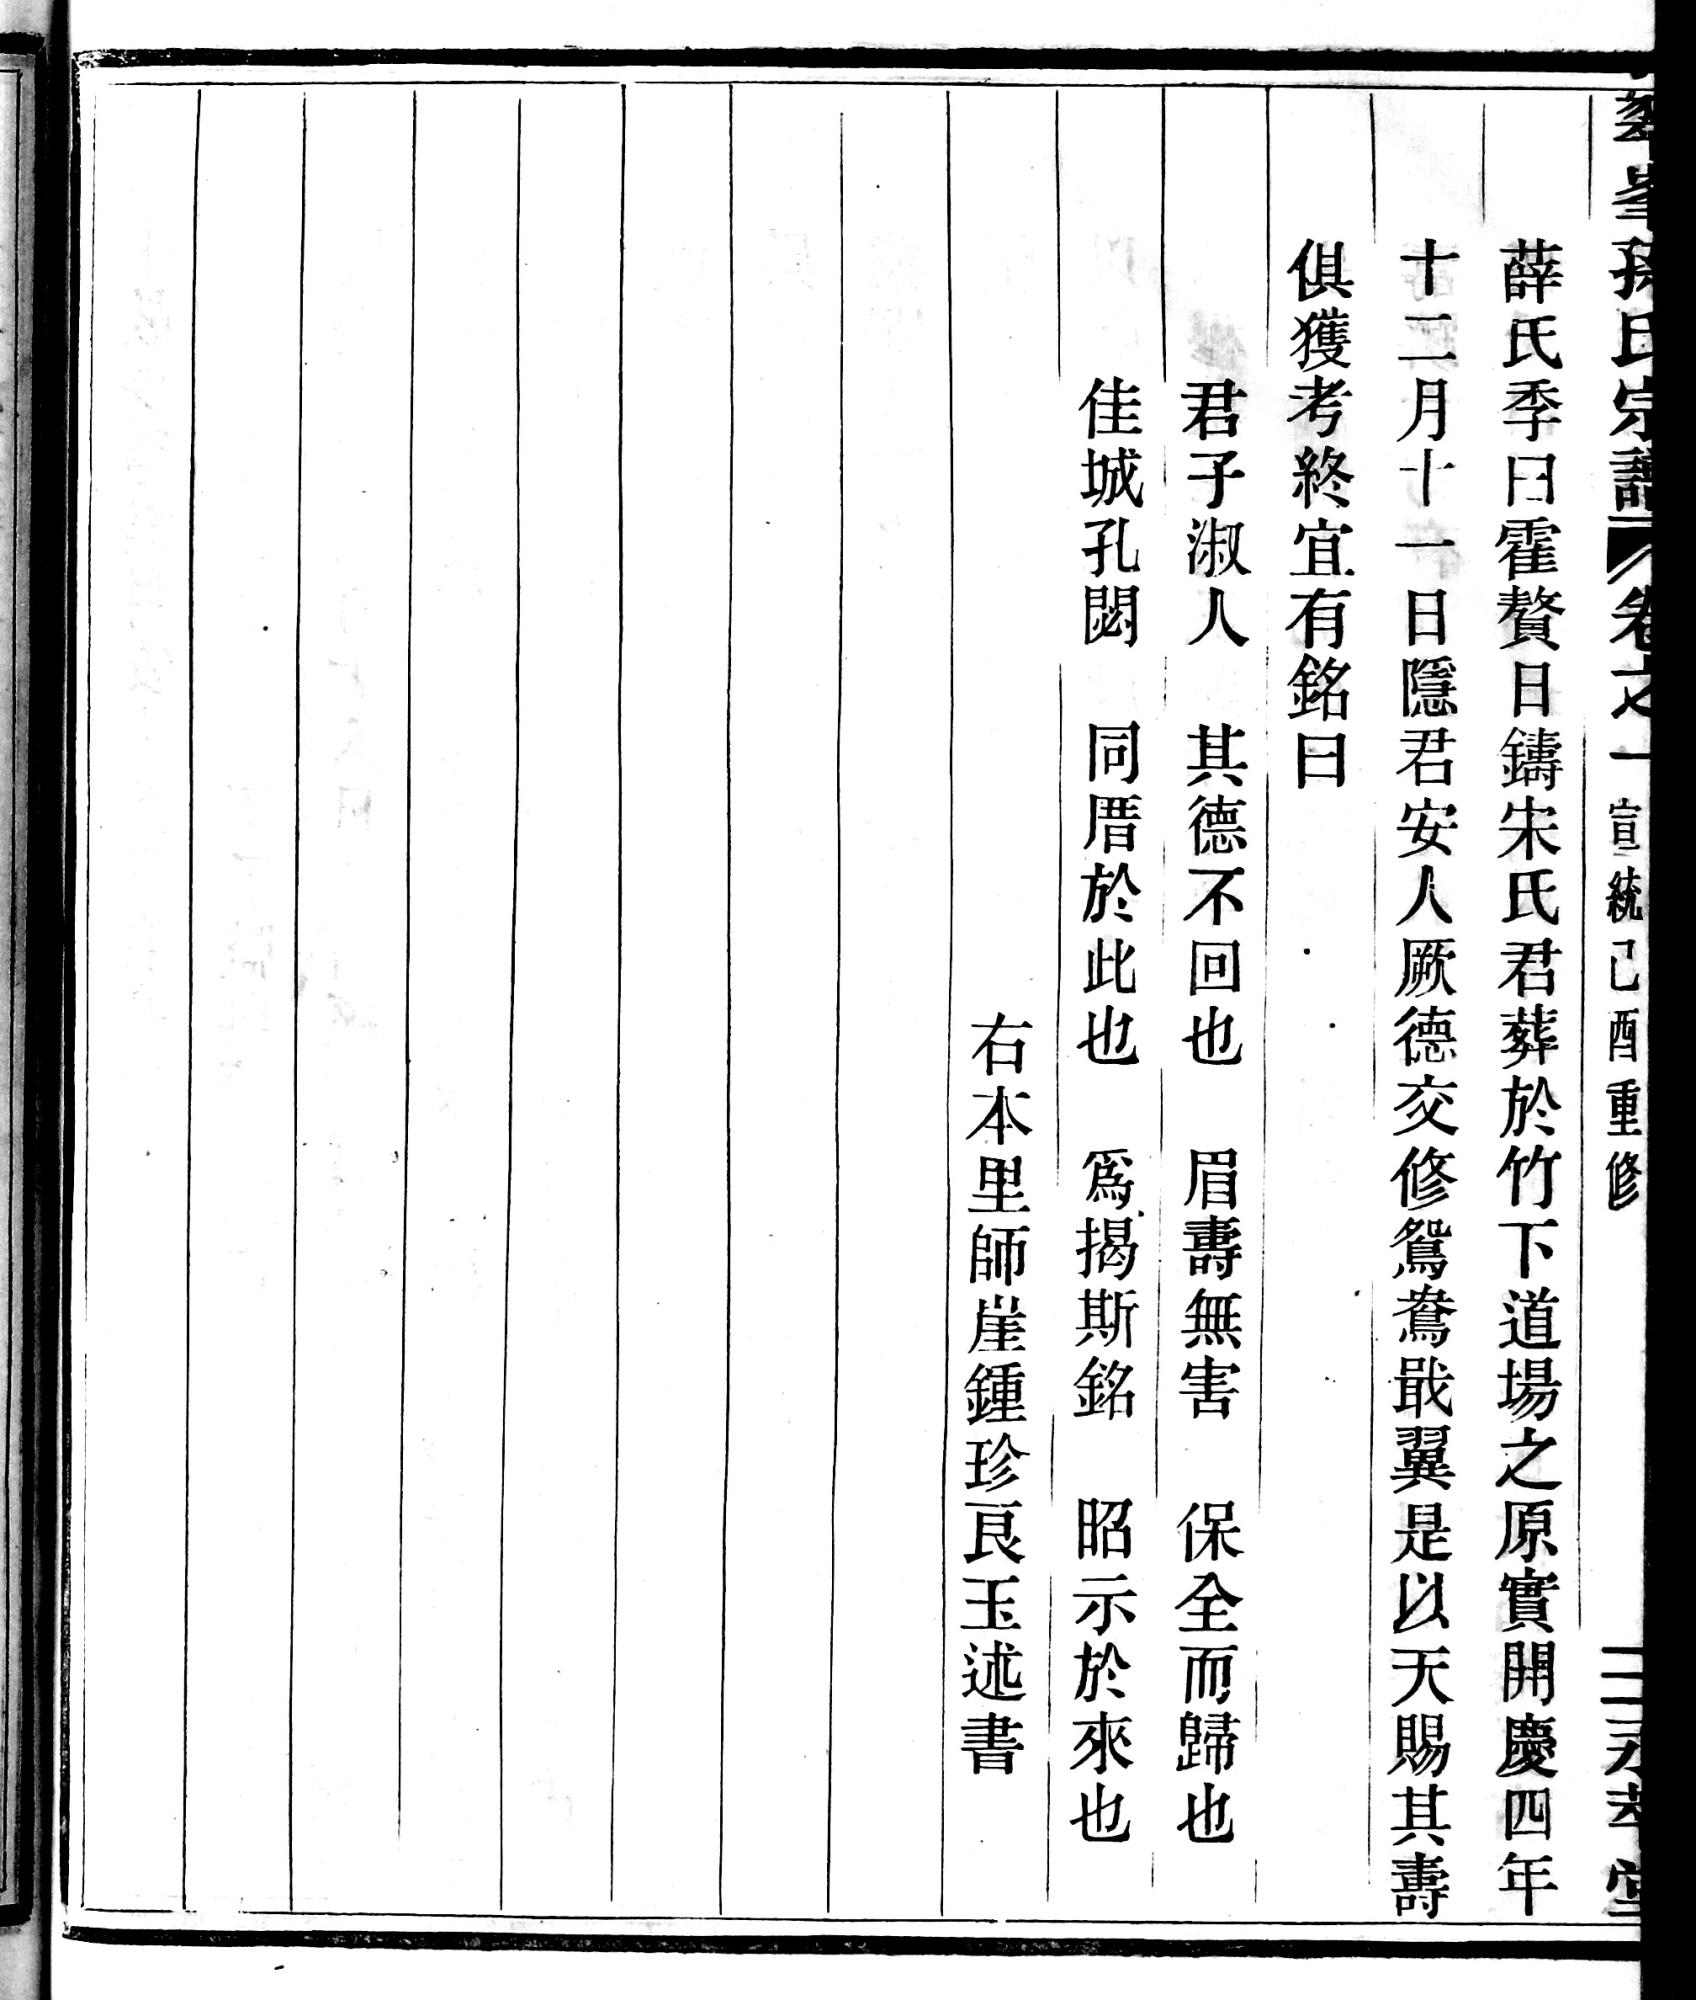 孫氏宗譜 卷之一 宣統己酉重修
堂
薛氏季曰霍贅日鑄宋氏君葬於竹下道場之原實開慶四年
十二月十一日隱君安人厥德交修鴛鴦戢翼是以天賜其壽
俱獲考終宜有銘曰
君子淑人 其德不回也 眉壽無害 保全而歸也
佳城孔閟 同厝於此也 爲揭斯銘 昭示於來也
右本里師崖鍾珍艮玉述書